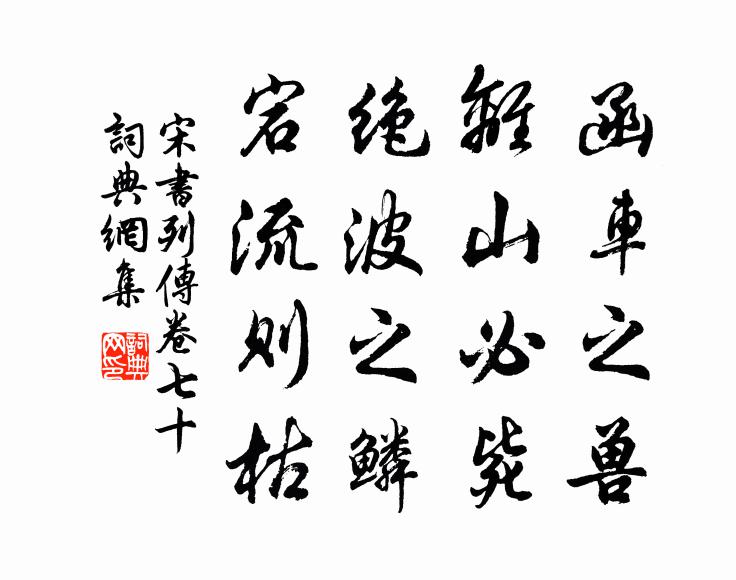 函車之兽
離山必毙
絶波之鱗
宕流則枯
宋書列傳卷七十
詞典網集
詞典
网印